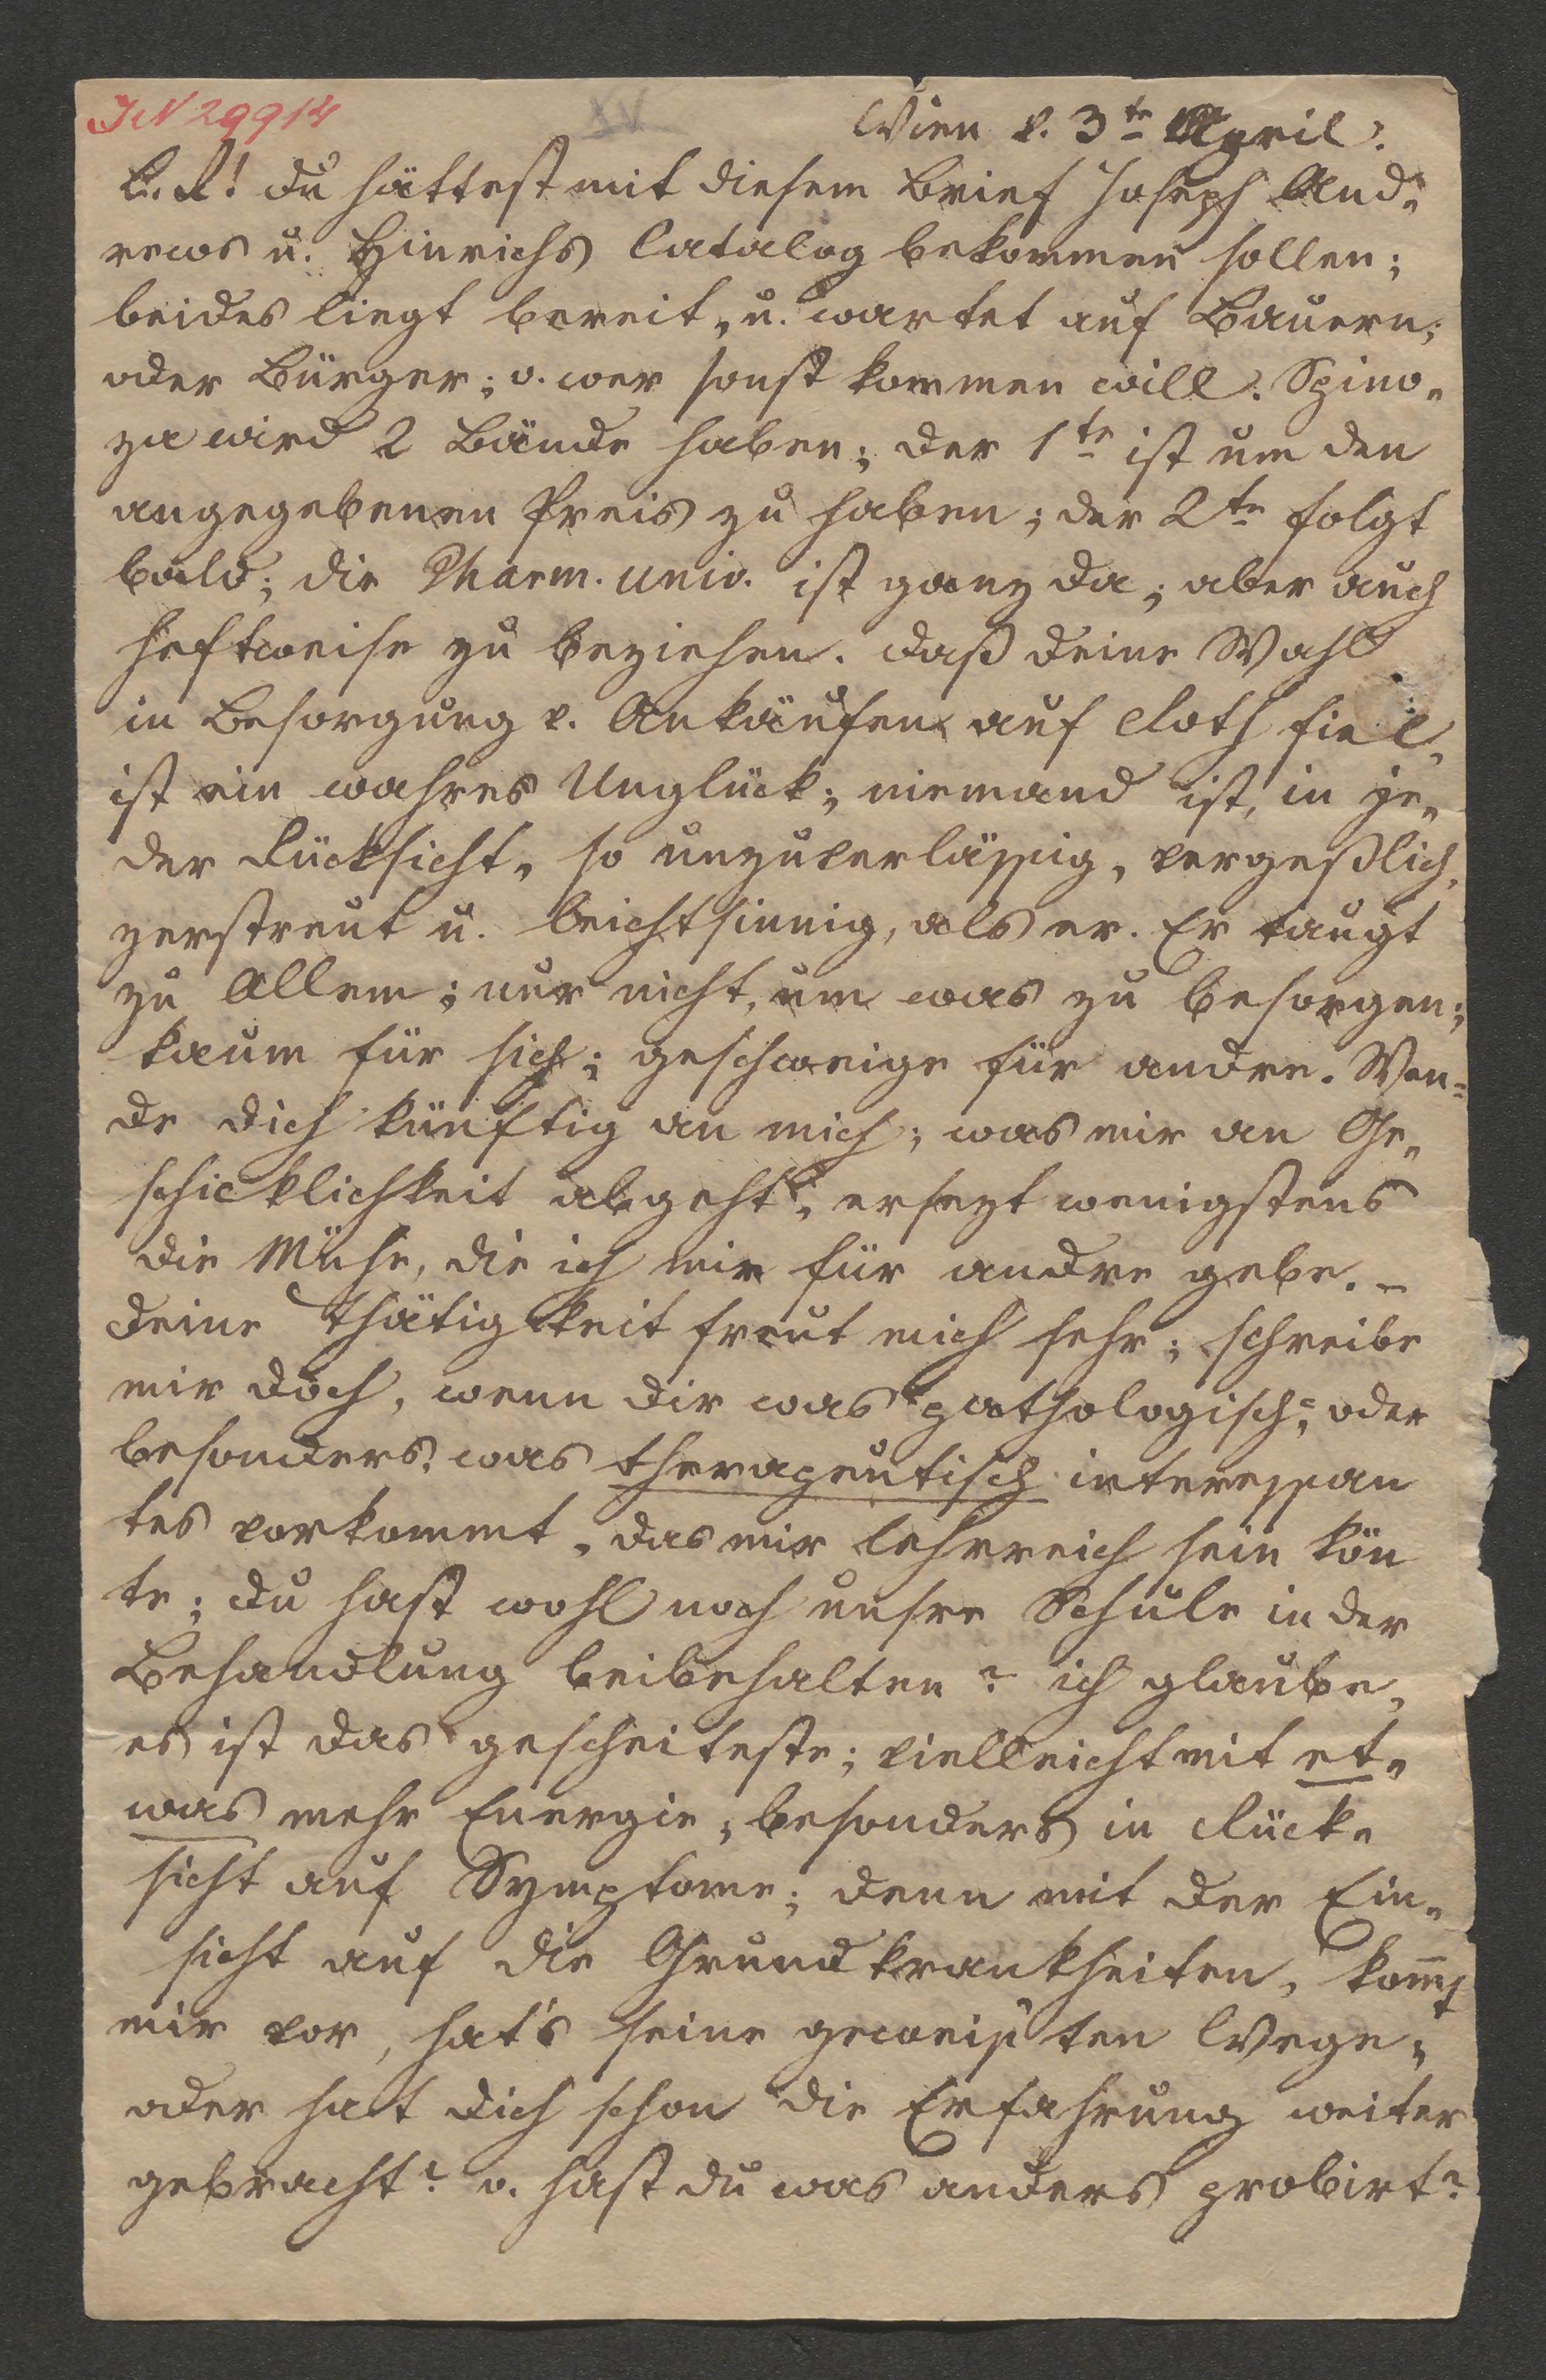 IN 29914
XV
Wien d. 3te April.
L. R! du hättest mit diesem Brief Joseph And-
rews u. Hinrichs Catalog bekommen sollen;
beides liegt bereit, u. wartet auf Bauern;
oder Bürger; o. wer sonst kommen will. Spino-
za wird 2 Bände haben; der 1te ist um den
angegebenen Preis zu haben; der 2te folgt
bald; die Pharm. univ. ist ganz da; aber auch
heftweise zu beziehen. daß deine Wahl
in Besorgung v. Ankäufen auf Roth fiel,
ist ein wahres Unglück; niemand ist, in je-
der Rücksicht, so unzuverlässig, vergeßlich,
zerstreut u. leichtsinnig, als er. Er taugt
zu Allem; nur nicht, um was zu besorgen;
kaum für sich; geschweige für andre. Wen-
de dich künftig an mich; was mir an Ge-
schicklichkeit abgeht, ersezt wenigstens
die Mühe, die ich mir für andre gebe. –
deine Thätigkeit freut mich sehr; schreibe
mir doch, wenn dir was pathologisch-, oder
besonders, was therapeutisch interessan
tes vorkommt, das mir lehrreich sein kön
te; du hast wohl noch unsre Schule in der
Behandlung beibehalten? ich glaube,
es ist das gescheiteste; vielleicht mit et-
was mehr Energie, besonders in Rück-
sicht auf Symptome; denn mit der Ein-
sicht auf die Grundkrankheiten, kom̅t
mir vor, hat's seine geweis'ten Wege;
oder hat dich schon die Erfahrung weiter
gebracht? o. hast du was anders probirt?